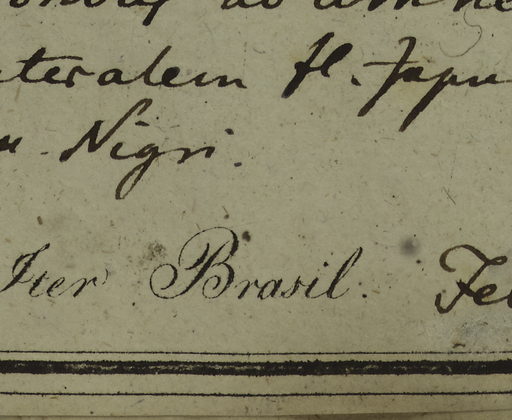 ateralem fl. Japu
Nigri.
Iter Brasil. Feb